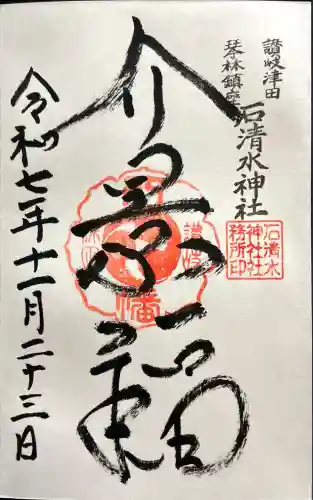 讃岐津田
琴林鎮座
石清水神社
石清水
神社社
務所印
介景福
令和七年十一月二十三日